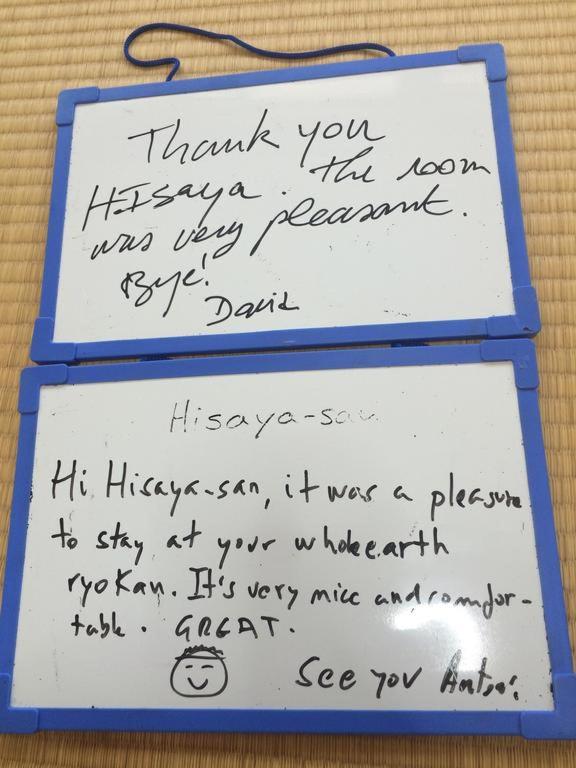 Thank you
HISaya. The room
was very pleasant.
Bye!
David
Hisaya-san
Hi Hisaya-san, it was a pleasure
to stay at your wholeearth
ryoKan. It's very nice and comfor-
table. GREAT.
See you